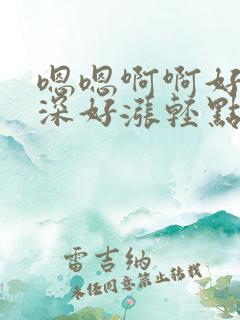 嗯嗯啊啊好
深好漲輕點
雷吉纳
未经同意禁止转载